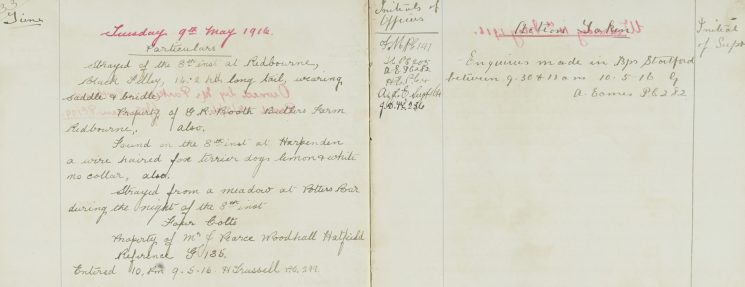 Time
Tuesday 9th May 1916.
Particulars
Strayed of the 8th inst at Redbourne,
Black Filley, 14.2 hh long tail, wearing
saddle & bridle
Property of G.R. Booth Butlers Farm
Redbourne, also.
Found on the 8th inst at Harpenden
a wire haired fox terrier dogs lemon & white
no collar, also.
Strayed from a meadow at Potters Bar
during the night of the 8th inst
Four Colts
Property of Mr J Pearce Woodhall Hatfield
Reference G 135.
Entered 10. Pm 9-5-16. H Trussell
Initials of
Officers
Action Taken
Enquiries made in Bps Stortford
between 9-30 & 11 am 10-5-16 by
A. Eames PC 282
Initial
of Supt